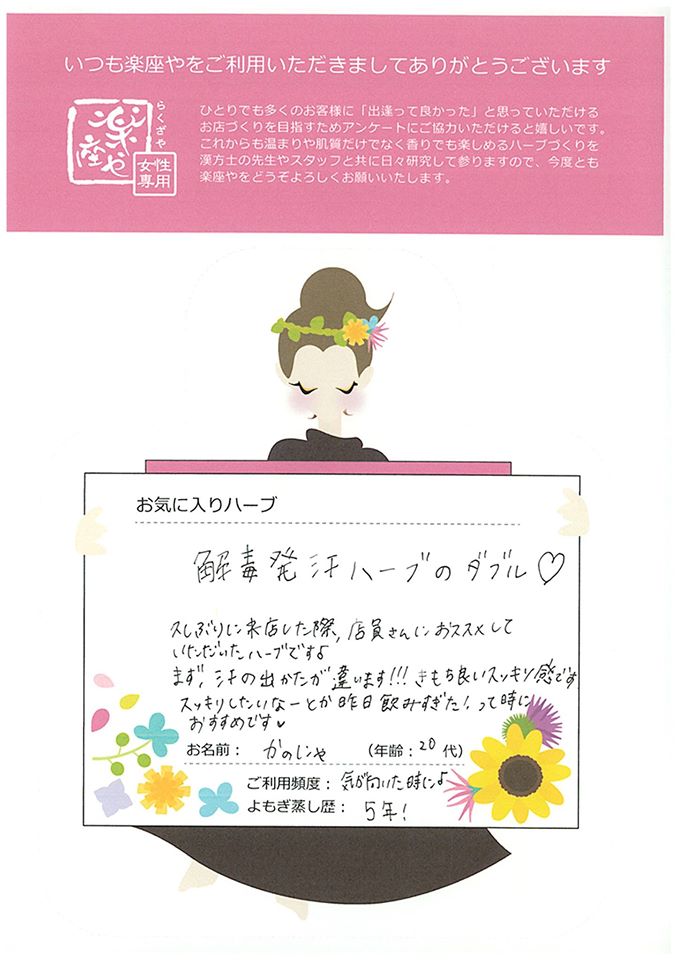 いつも楽座やをご利用いただきましてありがとうございます
らくざや
楽座や
女性専用
ひとりでも多くのお客様に「出逢って良かった」と思っていただける
お店づくりを目指すためアンケートにご協力いただけると嬉しいです。
これからも温まりや肌質だけでなく香りでも楽しめるハーブづくりを
漢方士の先生やスタッフと共に日々研究して参りますので、今度とも
楽座やをどうぞよろしくお願いいたします。
お気に入りハーブ
解毒発汗ハーブのダブル♡
久しぶりに来店した際、店員さんにおススメして
いただいたハーブです♪
まず、汗の出かたが違います!!!きもち良いスッキリ感です
スッキリしたいなーとか昨日飲みすぎた!って時に
おすすめです♥
お名前： かのじゃ （年齢：20 代）
ご利用頻度： 気が向いた時に♪
よもぎ蒸し歴： 5年!